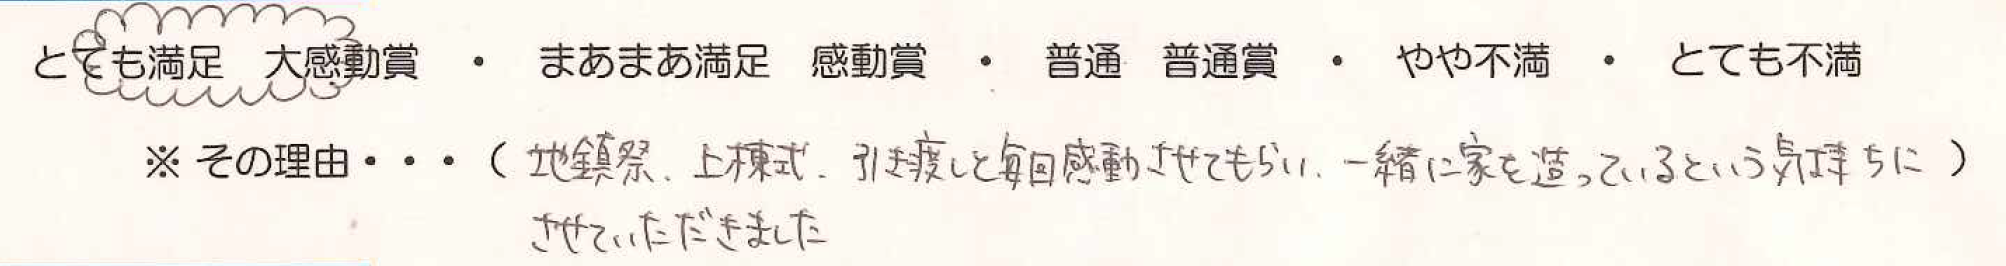 とても満足　大感動賞　・　まあまあ満足　感動賞　・　普通　普通賞　・　やや不満　・　とても不満
※ その理由・・・（ 地鎮祭、上棟式、引き渡しと毎回感動させてもらい、一緒に家を造っているという気持ちに ）
させていただきました